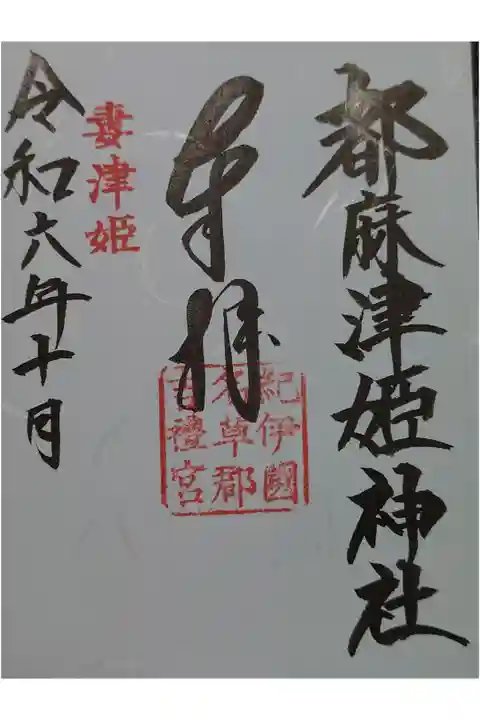 都麻津姫神社
奉拝
紀伊國
名草郡
吉禮宮
妻津姫
令和六年十月